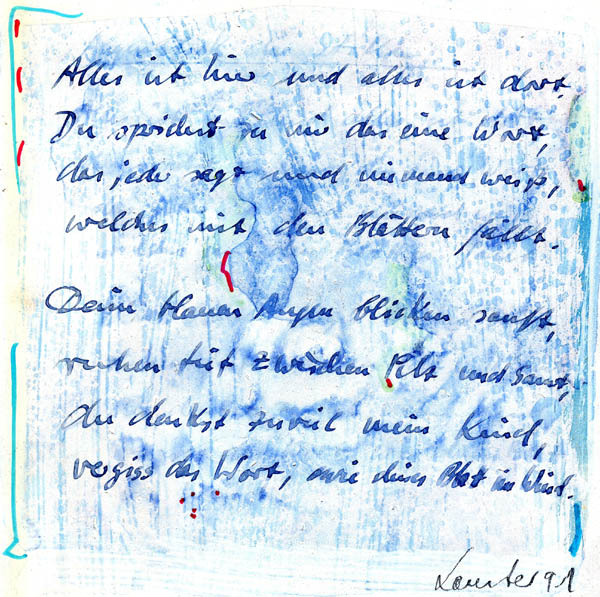 Alles ist hier und alles ist dort.
Du sprichst zu mir das eine Wort,
das jeder sagt und niemand weiß,
welches mit den Blättern fällt.
Deine blauen Augen blicken sanft,
ruhen tief zwischen Pelz und Samt,
du denkst zuviel mein Kind,
vergiss das Wort, wie dieses Blat im Wind.
91